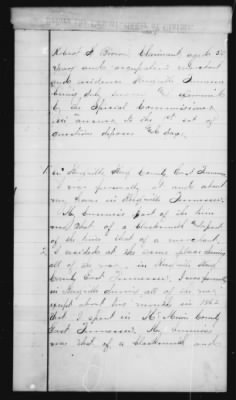 Robert A. Brown Claimant aged 50
years and occupation merchant
and residence Tennessee
being duly sworn and examined
by the Special Commissioner
in answer to the 1st set of
questions deposes & says.
1 In County East Tennessee
I was personally at and about
my home in Tennessee
My business part of the time
was that of a blacksmith & part
of the time that of a merchant.
2 I resided at the same place during
all of the war, in
County East Tennessee. I was personally
in during all of the war
except about two months in 1862
that I spent in McMinn County
East Tennessee. My business
was that of a blacksmith and